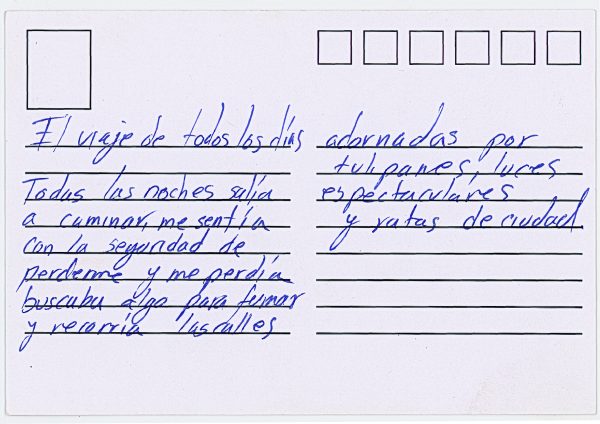 El viaje de todos los días
Todas las noches salía
a caminar, me sentía
con la seguridad de
perderme y me perdía
buscaba algo para fumar
y recorría las calles
adornadas por
tulipanes, luces
espectaculares
y ratas de ciudad